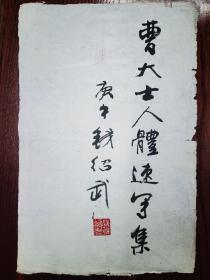 曹大士人體速写集
庚午 钱绍武